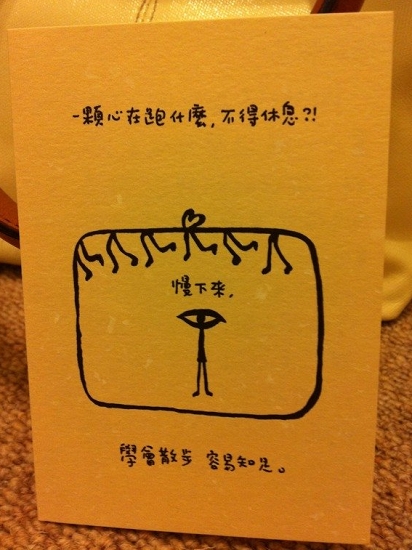 一顆心在跑什麼,不得休息?!
慢下來,
學會散步 容易知足。